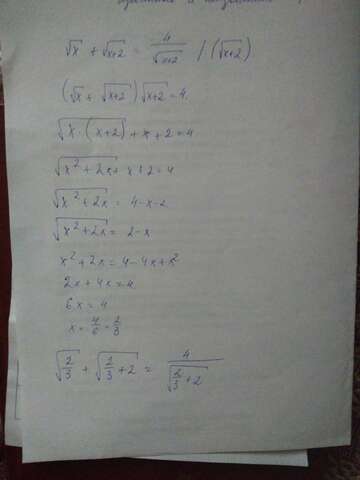 √x + √(x+2) = 4/√(x+2) / (√(x+2))
(√x + √(x+2)) √(x+2) = 4.
√(x·(x+2)) + x + 2 = 4
√(x² + 2x) + x + 2 = 4
√(x² + 2x) = 4-x-2
√(x² + 2x) = 2-x
x² + 2x = 4-4x+x²
2x + 4x = 4
6x = 4
x = 4/6 = 2/3
√(2/3) + √(2/3 + 2) = 4/√(2/3 + 2)